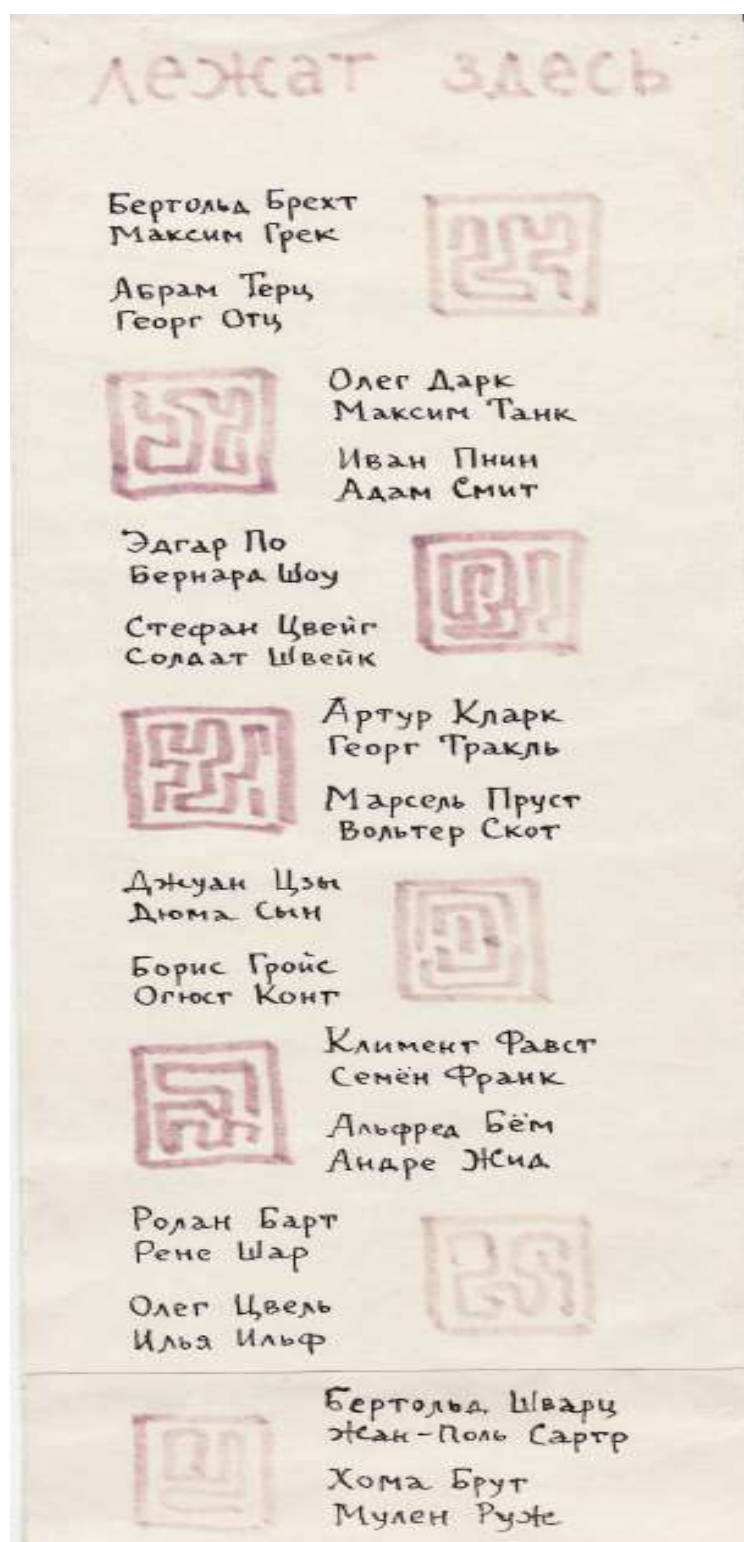 лежат здесь
Бертольд Брехт
Максим Грек
Абрам Терц
Георг Отц
Олег Дарк
Максим Танк
Иван Пнин
Адам Смит
Эдгар По
Бернард Шоу
Стефан Цвейг
Солдат Швейк
Артур Кларк
Георг Тракль
Марсель Пруст
Вольтер Скот
Джуан Цзы
Дюма Сын
Борис Гройс
Огюст Конт
Климент Фавст
Семён Франк
Альфред Бём
Андре Жид
Ролан Барт
Рене Шар
Олег Цвель
Илья Ильф
Бертольд Шварц
Жан-Поль Сартр
Хома Брут
Мулен Руже